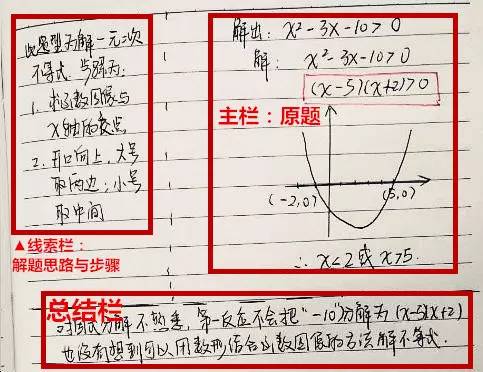 此题型为解一元二次
不等式. 步骤为:
1. 求函数图像与
x轴的交点
2. 开口向上, 大号
取两边; 小号
取中间
▲线索栏:
解题思路与步骤
解出: x²-3x-10>0
解: x²-3x-10>0
(x-5)(x+2)>0
主栏:原题
(-2,0)
(5,0)
∴ x<2或 x>5.
总结栏
对因式分解不熟悉, 第一反应不会把"-10"分解为 (x-5)(x+2)
也没有想到可以用数形结合函数图像的方法解不等式.